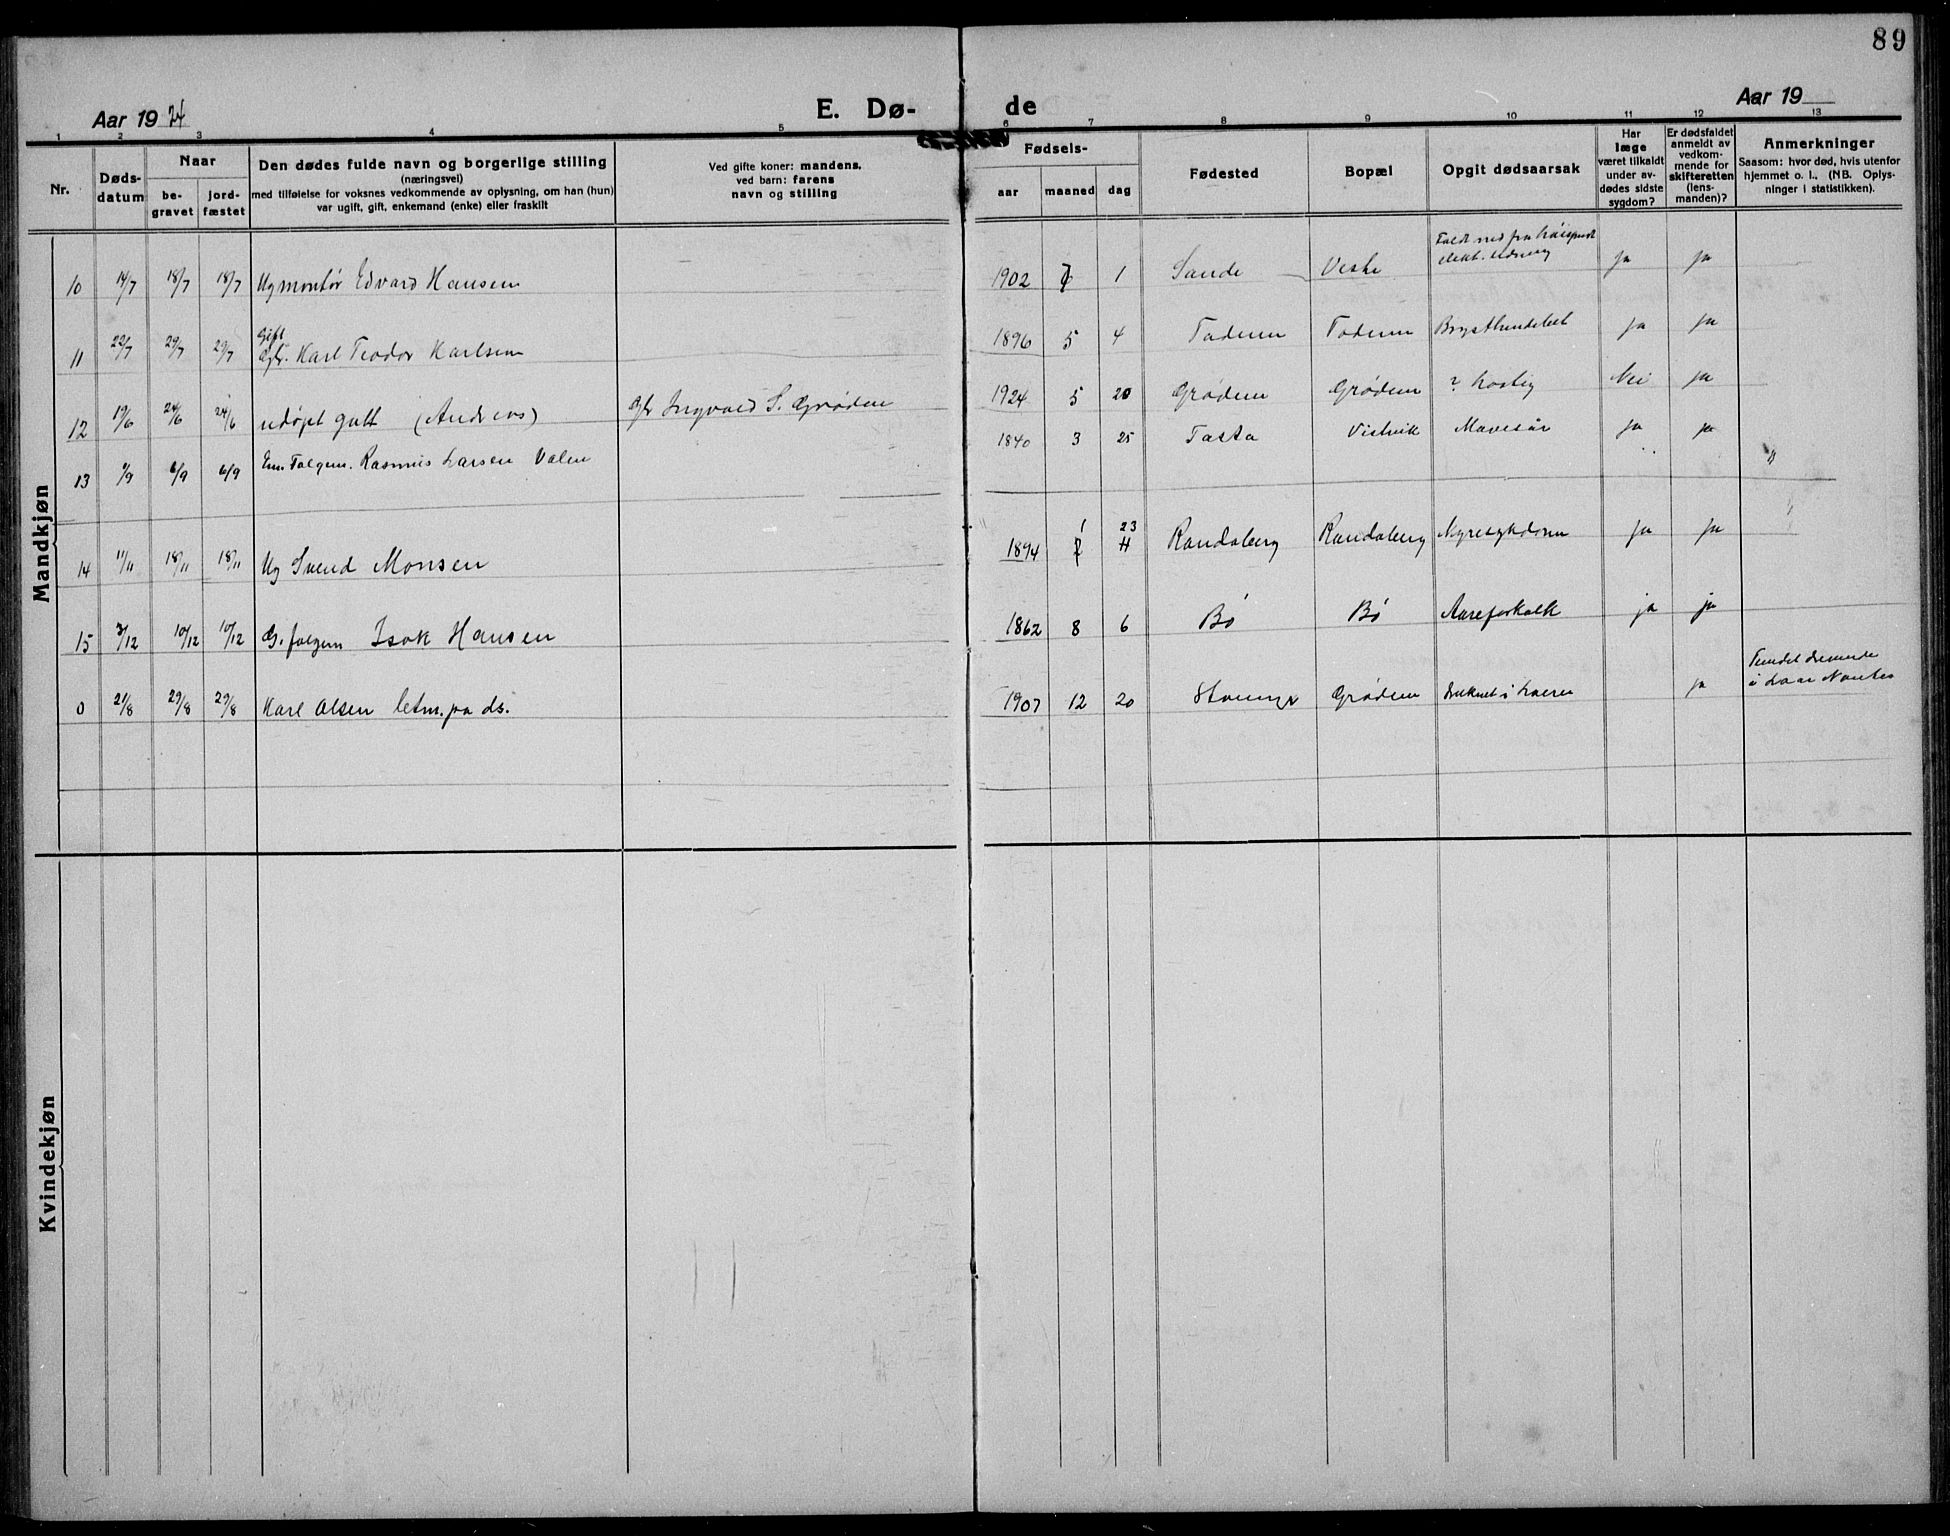 89
Aar 1924
E. Dø-
de
Aar 19
1 2 3 4 5 6 7 8 9 10 11 12 13
Nr.
Døds-
datum
Naar
be-
gravet
jord-
fæstet
Den dødes fulde navn og borgerlige stilling
(næringsvei)
med tilføielse for voksnes vedkommende av oplysning, om han (hun)
var ugift, gift, enkemand (enke) eller fraskilt
Ved gifte koner: mandens,
ved barn: farens
navn og stilling
Fødsels-
aar maaned dag
Fødested
Bopæl
Opgit dødsaarsak
Har
læge
været tilkaldt
under av-
dødes sidste
sygdom?
Er dødsfaldet
anmeldt av
vedkom-
mende for
skifteretten
(lens-
manden)?
Anmerkninger
Saasom: hvor død, hvis utenfor
hjemmet o. l., (NB. Oplys-
ninger i statistikken).
Mandkjøn
10 14/7 18/7 18/7 Ugmontør Edvard Hansen 1902 1 Sande Viste Faldt ned fra ja ja
11 22/7 29/7 29/7 Gift
Gbr. Karl Teodor Karlsen 1896 5 4 Todnem Todnem Brysthindebet ja ja
12 19/6 24/6 24/6 udøpt gutt (Andreas) Gbr Ingvald S. Grødem 1924 5 20 Grødem Grødem ? hastig Nei ja
13 6/9 6/9 Enm. Folgem. Rasmus Larsen Valen 1840 3 25 Tasta Vistvik Mavesår ja ja
14 11/11 18/11 18/11 Ug Svend Monsen 1894 1 23 Randaberg Randaberg Nyresykdom ja ja
15 3/12 10/12 10/12 G. folgem Isak Hansen 1862 8 6 Bø Bø Aareforkalk ja ja
0 21/8 29/8 29/8 Karl Olsen letm. pa ds. 1907 12 20 Stavanger Grødem Druknet i Loire ja Fundet drivende
i Loar Nantes
Kvindekjøn